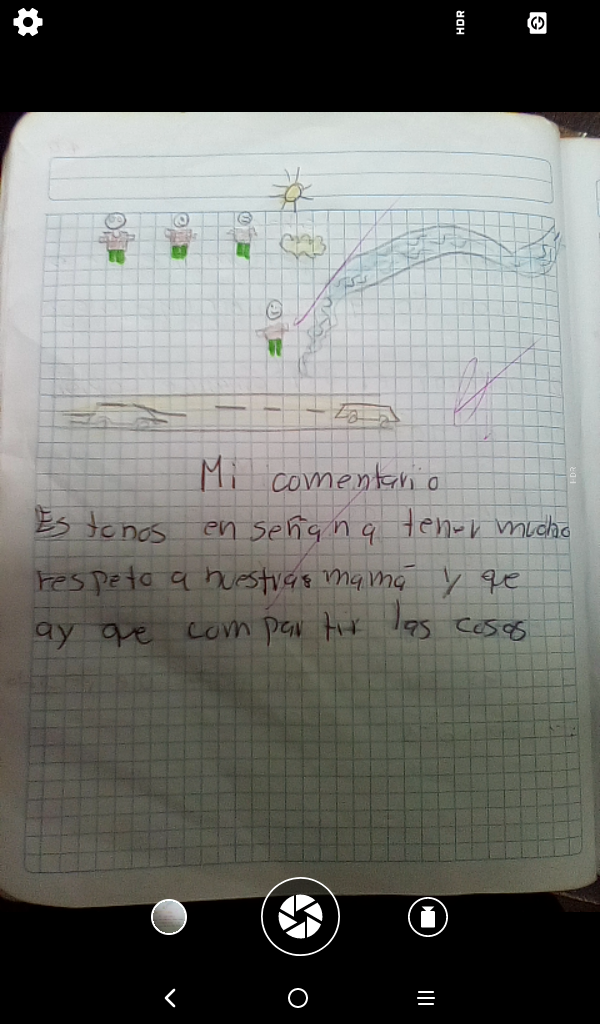 HDR
Mi comentario
Es tonos en señan a tener mucho
respeto a nuestras mamá y que
ay que compartir las cosas